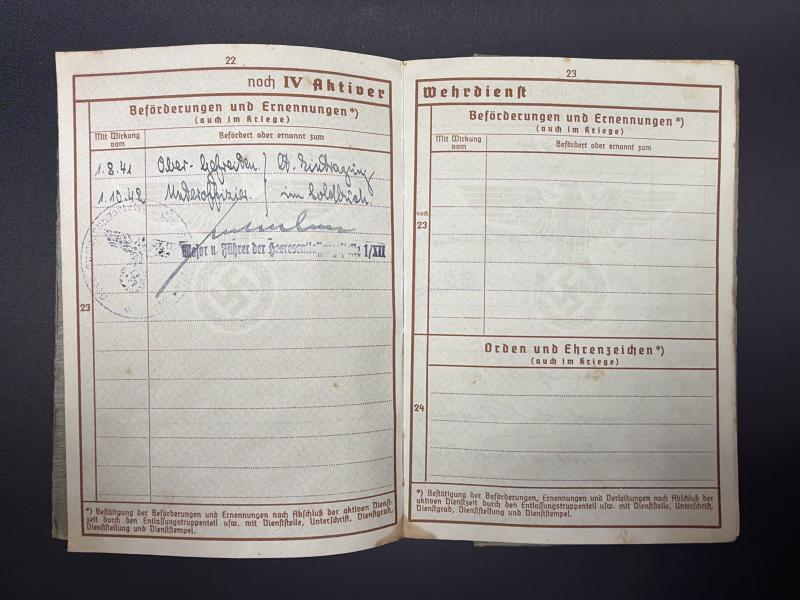 22
noch IV Aktiver
Beförderungen und Ernennungen*)
(auch im Kriege)
Mit Wirkung vom
Befördert oder ernannt zum
1.8.41 Ober-Gefreiten
1.10.42 Unteroffizier
lt. Eintragung
im Soldbuch.
Major u. Führer der Heeresentlassungsstelle 1/XII
23
*) Bestätigung der Beförderungen und Ernennungen nach Abschluß der aktiven Dienst-
zeit durch den Entlassungstruppenteil usw. mit Dienststelle, Unterschrift, Dienstgrad,
Dienststellung und Dienststempel.
23
Wehrdienst
Beförderungen und Ernennungen*)
(auch im Kriege)
Mit Wirkung vom
Befördert oder ernannt zum
noch
23
Orden und Ehrenzeichen*)
(auch im Kriege)
24
*) Bestätigung der Beförderungen, Ernennungen und Verleihungen nach Abschluß der
aktiven Dienstzeit durch den Entlassungstruppenteil usw. mit Dienststelle, Unterschrift,
Dienstgrad, Dienststellung und Dienststempel.